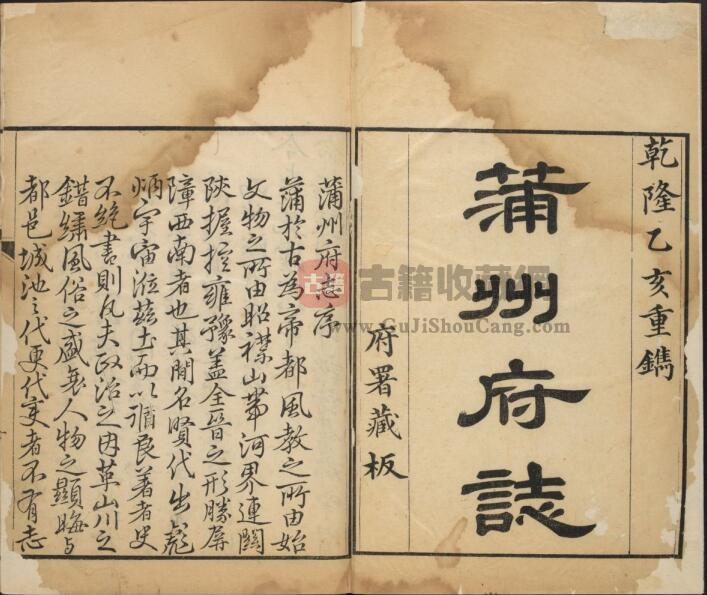 乾隆乙亥重鐫
蒲州府誌
府署藏板
蒲州府志序
蒲於古為帝都風教之所由始
文物之所由昭襟山帶河界連關
陝握控雍豫蓋全晉之形勝屏
障西南者也其間名賢代出彪
炳宇宙涖茲土而以循良著者史
不絕書則凡夫政治之因革山川之
錯繡風俗之盛衰人物之顯晦与
都邑城池之代更代變者不有志
古籍 古籍收藏網
www.GuJiShouCang.com